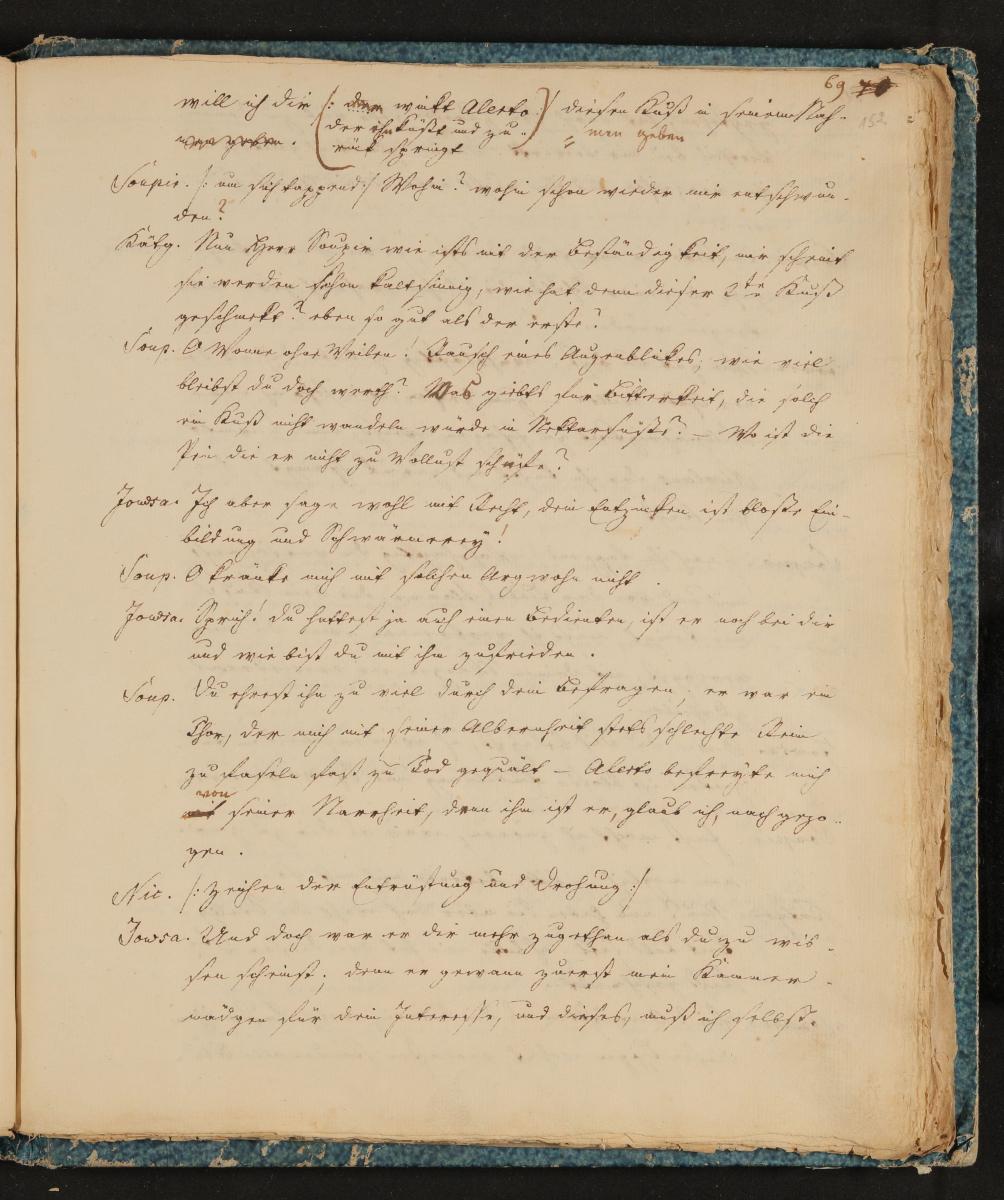 69 70
152
will ich dir /: der winkt Alerto :/ diesen Kuß in seinem Nah-
men geben. der ihn küßt und zu- men geben
rück springt
Soupir. /: um sich tappend :/ Wohin? wohin schon wieder mir entschwun-
den?
Kätg. Nun Herr Soupir wie ists mit der Beständigkeit, mir scheint
sie werden schon kaltsinnig, wie hat denn dieser 2te Kuß
geschmekt? eben so gut als der erste?
Soup. O Wonne ohne Weilen! Rausch eines Augenblickes, wie viel
bleibst du doch werth? Was giebts für Bitterkeit, die solch
ein Kuß nicht wandeln würde in Nektarsüße? – Wo ist die
Pein die er nicht zu Wollust schüfe?
Jowsa. Ich aber sage wohl mit Recht, dein Entzüken ist bloße Ein-
bildung und Schwärmerey!
Soup. O kränke mich mit solchen Argwohn nicht.
Jowsa. Sprich! du hattest ja auch einen Bedienten, ist er noch bei dir
und wie bist du mit ihm zufrieden.
Soup. Du ehrest ihn zu viel durch dein Befragen, er war ein
Thor, der mich mit seiner Albernheit stets schlechte Reim
zu faseln fast zu Tod gequält – Alerto befreyte mich
von
mit seiner Narrheit, denn ihm ist er, glaub ich, nachgezo-
gen.
Nic. /: Zeichen der Entrüstung und Drohung :/
Jowsa. Und doch war er dir mehr zugethan als du zu wis-
sen scheinst; denn er gewann zuerst mein Kammer-
mädgen für dein Interesse, und dieses, muß ich selbst